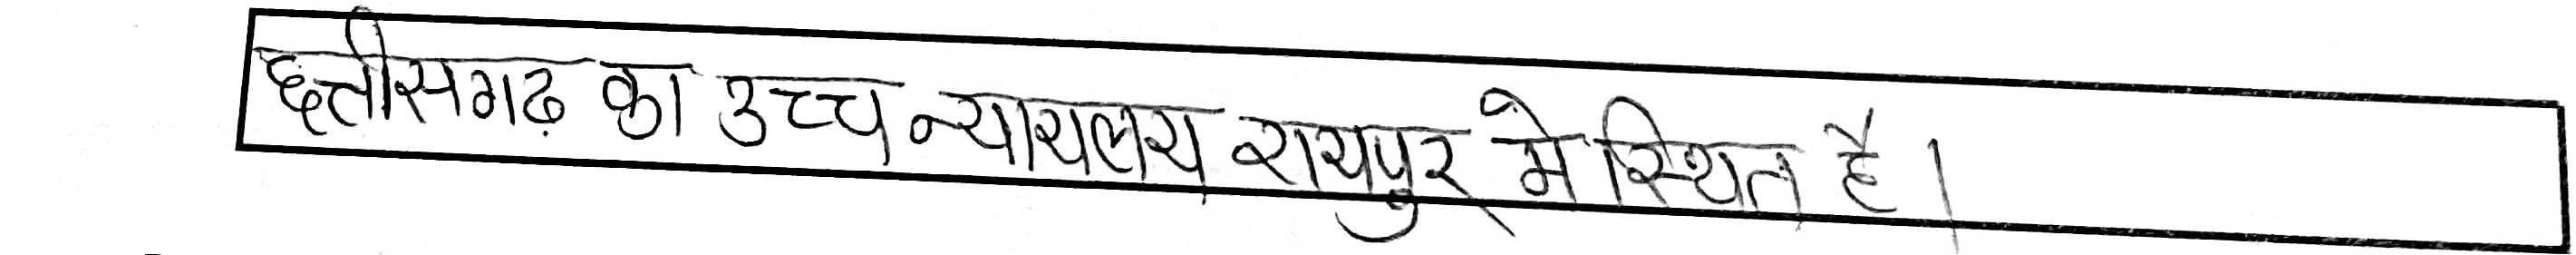 छत्तीसगढ़ का उच्च न्यायलय रायपुर मे स्थित है।